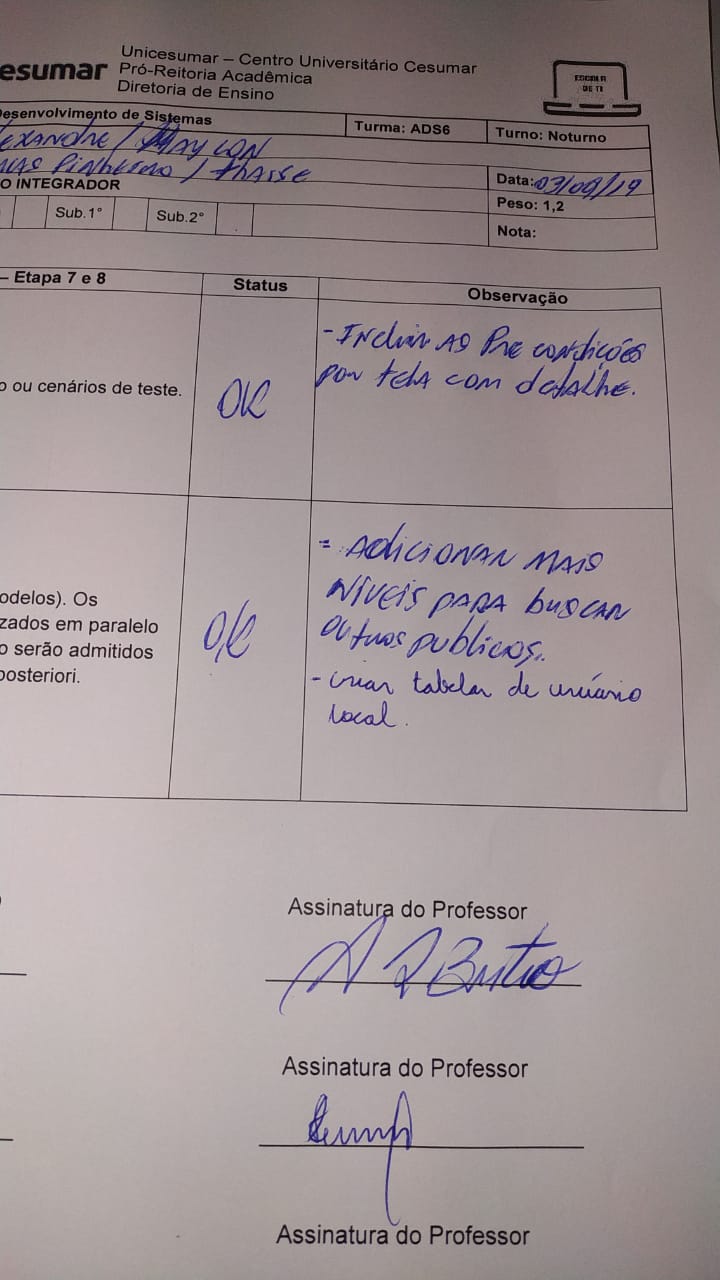 esumar
Unicesumar – Centro Universitário Cesumar
Pró-Reitoria Acadêmica
Diretoria de Ensino
ESCOLA
DE TI
Desenvolvimento de Sistemas
Turma: ADS6
Turno: Noturno
exandre / Maycon
Pinheiro / Thasse
Data: 03/09/19
O INTEGRADOR
Peso: 1,2
Sub.1°
Sub.2°
Nota:
– Etapa 7 e 8
Status
Observação
o ou cenários de teste.
OK
- Incluir as Pre condições
por tela com detalhe.
odelos). Os
zados em paralelo
o serão admitidos
posteriori.
OK
- Adicionar mais
níveis para buscar
outros publicos.
- criar tabelar de usuário
local.
Assinatura do Professor
Assinatura do Professor
Assinatura do Professor